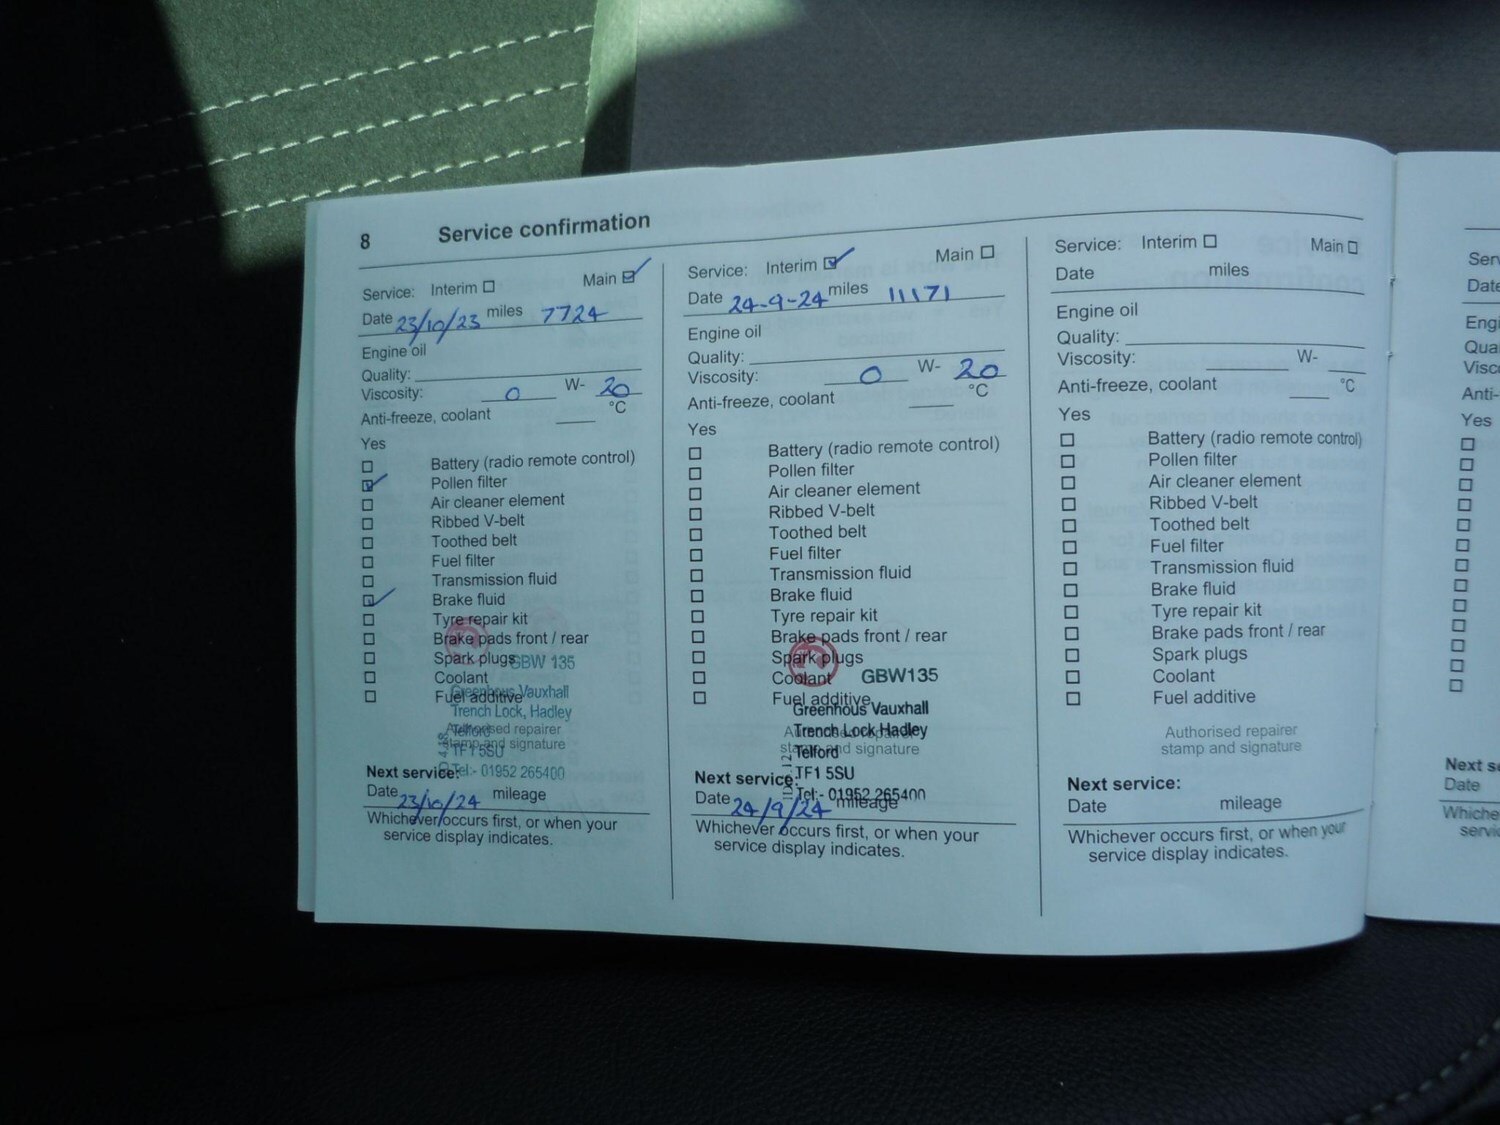 8 Service confirmation
Service: Interim Main
Date 23/10/23 miles 7724
Engine oil
Quality:
Viscosity: 0 W- 20
Anti-freeze, coolant °C
Yes
Battery (radio remote control)
Pollen filter
Air cleaner element
Ribbed V-belt
Toothed belt
Fuel filter
Transmission fluid
Brake fluid
Tyre repair kit
Brake pads front / rear
Spark plugs
GBW 135
Coolant
Fuel additive
Greenhous Vauxhall
Trench Lock, Hadley
Telford
Authorised repairer
stamp and signature
TF1 5SU
Tel:- 01952 265400
Next service:
Date 23/10/24 mileage
Whichever occurs first, or when your
service display indicates.
Service: Interim Main
Date 24-9-24 miles 11171
Engine oil
Quality:
Viscosity: 0 W- 20
Anti-freeze, coolant °C
Yes
Battery (radio remote control)
Pollen filter
Air cleaner element
Ribbed V-belt
Toothed belt
Fuel filter
Transmission fluid
Brake fluid
Tyre repair kit
Brake pads front / rear
Spark plugs
Coolant GBW135
Fuel additive
Greenhous Vauxhall
Trench Lock Hadley
Authorised repairer
stamp and signature
Telford
TF1 5SU
Tel:- 01952 265400
Next service:
Date 24/9/24 mileage
Whichever occurs first, or when your
service display indicates.
Service: Interim Main
Date miles
Engine oil
Quality:
Viscosity: W-
Anti-freeze, coolant °C
Yes
Battery (radio remote control)
Pollen filter
Air cleaner element
Ribbed V-belt
Toothed belt
Fuel filter
Transmission fluid
Brake fluid
Tyre repair kit
Brake pads front / rear
Spark plugs
Coolant
Fuel additive
Authorised repairer
stamp and signature
Next service:
Date mileage
Whichever occurs first, or when your
service display indicates.
Date
Anti-
Yes
Next
Date